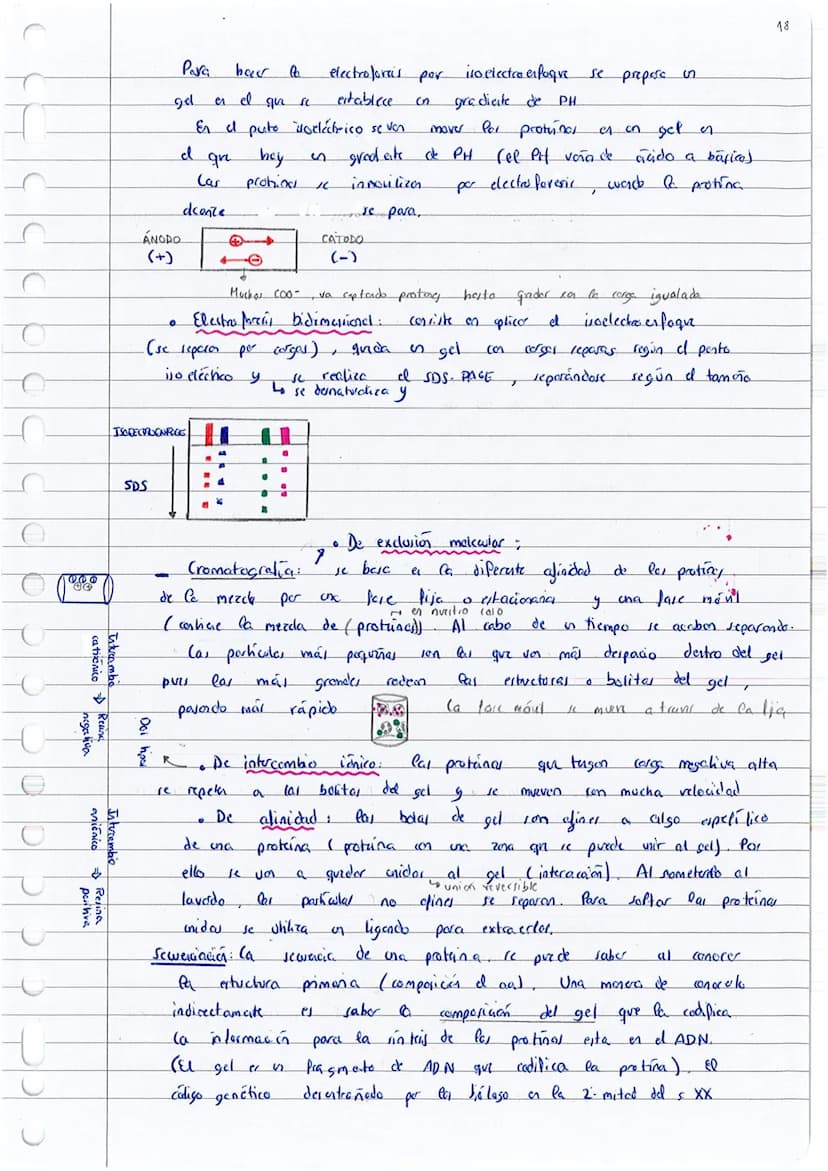 18
Para hacer la electroforesis por isoelectroenfoque se prepara un
gel en el que se establece un gradiente de PH
En el punto isoeléctrico se ven mover las proteínas en un gel en
el que hay un gradiente de PH (el PH varía de ácido a básico)
Las proteínas se inmovilizan por electroforesis, cuando la proteína
alcanza se para.
ÁNODO CÁTODO
(+) (-)
Muchos COO-, va captando protones hasta quedar con la carga igualada
• Electroforesis bidimensional: consiste en aplicar el isoelectroenfoque
(se separan por cargas), queda un gel con cargas separadas según el punto
isoeléctrico y se realiza el SDS-PAGE, separándose según el tamaño
↳ se desnaturaliza y
ISOELECTROENFOQUE
SDS
• De exclusión molecular:
- Cromatografía: se basa en la diferente afinidad de las proteínas
de la mezcla por una fase fija o estacionaria y una fase móvil
→ en nuestro caso
(contiene la mezcla de (proteínas)). Al cabo de un tiempo se acaban separando.
Las partículas más pequeñas son las que van más despacio dentro del gel
pues las más grandes rodean las estructuras o bolitas del gel,
pasando más rápido La fase móvil se mueve a través de la fija
• De intercambio iónico: las proteínas que tengan carga negativa alta
se repelen a las bolitas del gel y se mueven con mucha velocidad
• De afinidad: las bolas de gel son afines a algo específico
de una proteína (proteína con una zona que se puede unir al gel). Por
ello se van a quedar unidas al gel (interacción). Al someterlo al
↳ unión reversible
lavado, las partículas no afines se separan. Para soltar las proteínas
unidas se utiliza un ligando para extraerlas.
Secuenciación: La secuencia de una proteína, se puede saber al conocer
la estructura primaria (composición el aa). Una manera de conocerlo
indirectamente es saber la composición del gel que la codifica
La información para la síntesis de las proteínas esta en el ADN.
(El gel es un fragmento de ADN que codifica la proteína). El
código genético desentrañado por los biólogos en la 2ª mitad del s XX
Intercambio
catiónico → Resina
negativa
Intercambio
aniónico → Resina
positiva